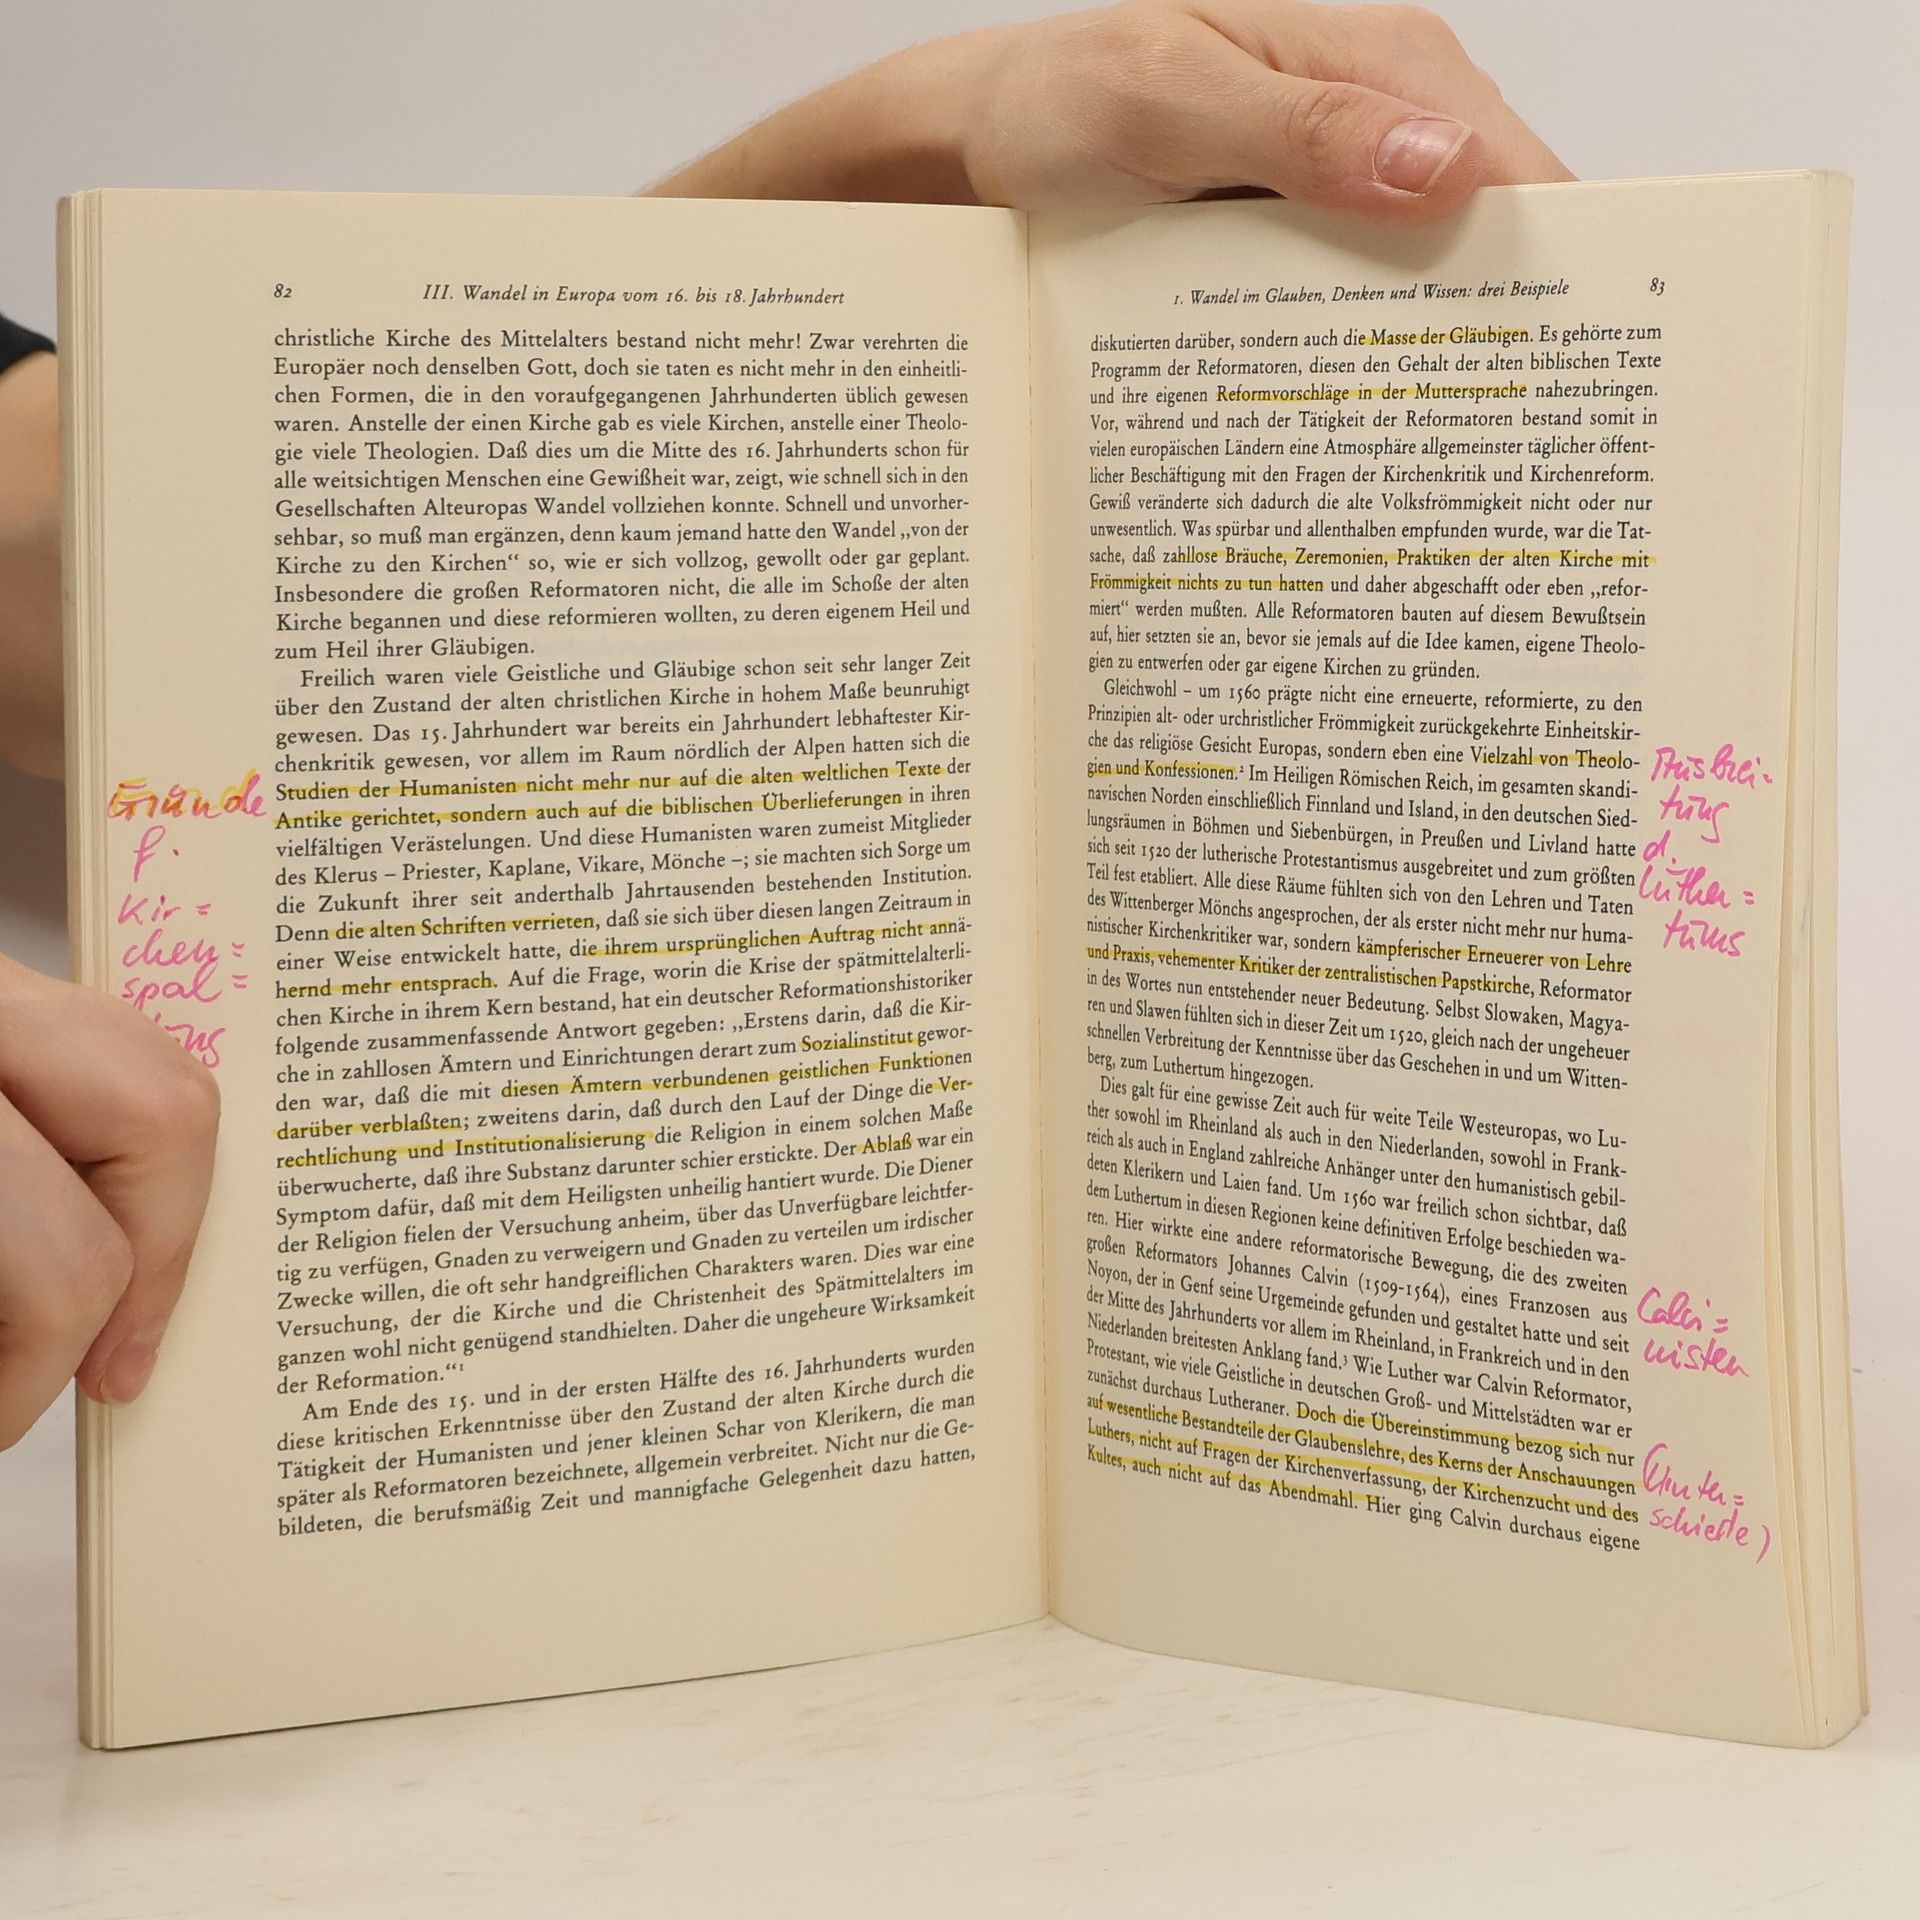 82
III. Wandel in Europa vom 16. bis 18. Jahrhundert
christliche Kirche des Mittelalters bestand nicht mehr! Zwar verehrten die
Europäer noch denselben Gott, doch sie taten es nicht mehr in den einheitli-
chen Formen, die in den voraufgegangenen Jahrhunderten üblich gewesen
waren. Anstelle der einen Kirche gab es viele Kirchen, anstelle einer Theolo-
gie viele Theologien. Daß dies um die Mitte des 16. Jahrhunderts schon für
alle weitsichtigen Menschen eine Gewißheit war, zeigt, wie schnell sich in den
Gesellschaften Alteuropas Wandel vollziehen konnte. Schnell und unvorher-
sehbar, so muß man ergänzen, denn kaum jemand hatte den Wandel „von der
Kirche zu den Kirchen“ so, wie er sich vollzog, gewollt oder gar geplant.
Insbesondere die großen Reformatoren nicht, die alle im Schoße der alten
Kirche begannen und diese reformieren wollten, zu deren eigenem Heil und
zum Heil ihrer Gläubigen.
Freilich waren viele Geistliche und Gläubige schon seit sehr langer Zeit
über den Zustand der alten christlichen Kirche in hohem Maße beunruhigt
gewesen. Das 15. Jahrhundert war bereits ein Jahrhundert lebhaftester Kir-
chenkritik gewesen, vor allem im Raum nördlich der Alpen hatten sich die
Studien der Humanisten nicht mehr nur auf die alten weltlichen Texte der
Antike gerichtet, sondern auch auf die biblischen Überlieferungen in ihren
vielfältigen Verästelungen. Und diese Humanisten waren zumeist Mitglieder
des Klerus – Priester, Kaplane, Vikare, Mönche –; sie machten sich Sorge um
die Zukunft ihrer seit anderthalb Jahrtausenden bestehenden Institution.
Denn die alten Schriften verrieten, daß sie sich über diesen langen Zeitraum in
einer Weise entwickelt hatte, die ihrem ursprünglichen Auftrag nicht annä-
hernd mehr entsprach. Auf die Frage, worin die Krise der spätmittelalterli-
chen Kirche in ihrem Kern bestand, hat ein deutscher Reformationshistoriker
folgende zusammenfassende Antwort gegeben: „Erstens darin, daß die Kir-
che in zahllosen Ämtern und Einrichtungen derart zum Sozialinstitut gewor-
den war, daß die mit diesen Ämtern verbundenen geistlichen Funktionen
darüber verblaßten; zweitens darin, daß durch den Lauf der Dinge die Ver-
rechtlichung und Institutionalisierung die Religion in einem solchen Maße
überwucherte, daß ihre Substanz darunter schier erstickte. Der Ablaß war ein
Symptom dafür, daß mit dem Heiligsten unheilig hantiert wurde. Die Diener
der Religion fielen der Versuchung anheim, über das Unverfügbare leichtfer-
tig zu verfügen, Gnaden zu verweigern und Gnaden zu verteilen um irdischer
Zwecke willen, die oft sehr handgreiflichen Charakters waren. Dies war eine
Versuchung, der die Kirche und die Christenheit des Spätmittelalters im
ganzen wohl nicht genügend standhielten. Daher die ungeheure Wirksamkeit
der Reformation.“1
Am Ende des 15. und in der ersten Hälfte des 16. Jahrhunderts wurden
diese kritischen Erkenntnisse über den Zustand der alten Kirche durch die
Tätigkeit der Humanisten und jener kleinen Schar von Klerikern, die man
später als Reformatoren bezeichnete, allgemein verbreitet. Nicht nur die Ge-
bildeten, die berufsmäßig Zeit und mannigfache Gelegenheit dazu hatten,
Gründe
f.
Kir=
chen=
spal=
1. Wandel im Glauben, Denken und Wissen: drei Beispiele
83
diskutierten darüber, sondern auch die Masse der Gläubigen. Es gehörte zum
Programm der Reformatoren, diesen den Gehalt der alten biblischen Texte
und ihre eigenen Reformvorschläge in der Muttersprache nahezubringen.
Vor, während und nach der Tätigkeit der Reformatoren bestand somit in
vielen europäischen Ländern eine Atmosphäre allgemeinster täglicher öffent-
licher Beschäftigung mit den Fragen der Kirchenkritik und Kirchenreform.
Gewiß veränderte sich dadurch die alte Volksfrömmigkeit nicht oder nur
unwesentlich. Was spürbar und allenthalben empfunden wurde, war die Tat-
sache, daß zahllose Bräuche, Zeremonien, Praktiken der alten Kirche mit
Frömmigkeit nichts zu tun hatten und daher abgeschafft oder eben „refor-
miert“ werden mußten. Alle Reformatoren bauten auf diesem Bewußtsein
auf, hier setzten sie an, bevor sie jemals auf die Idee kamen, eigene Theolo-
gien zu entwerfen oder gar eigene Kirchen zu gründen.
Gleichwohl – um 1560 prägte nicht eine erneuerte, reformierte, zu den
Prinzipien alt- oder urchristlicher Frömmigkeit zurückgekehrte Einheitskir-
che das religiöse Gesicht Europas, sondern eben eine Vielzahl von Theolo-
gien und Konfessionen.2 Im Heiligen Römischen Reich, im gesamten skandi-
navischen Norden einschließlich Finnland und Island, in den deutschen Sied-
lungsräumen in Böhmen und Siebenbürgen, in Preußen und Livland hatte
sich seit 1520 der lutherische Protestantismus ausgebreitet und zum größten
Teil fest etabliert. Alle diese Räume fühlten sich von den Lehren und Taten
des Wittenberger Mönchs angesprochen, der als erster nicht mehr nur huma-
nistischer Kirchenkritiker war, sondern kämpferischer Erneuerer von Lehre
und Praxis, vehementer Kritiker der zentralistischen Papstkirche, Reformator
in des Wortes nun entstehender neuer Bedeutung. Selbst Slowaken, Magya-
ren und Slawen fühlten sich in dieser Zeit um 1520, gleich nach der ungeheuer
schnellen Verbreitung der Kenntnisse über das Geschehen in und um Witten-
berg, zum Luthertum hingezogen.
Dies galt für eine gewisse Zeit auch für weite Teile Westeuropas, wo Lu-
ther sowohl im Rheinland als auch in den Niederlanden, sowohl in Frank-
reich als auch in England zahlreiche Anhänger unter den humanistisch gebil-
deten Klerikern und Laien fand. Um 1560 war freilich schon sichtbar, daß
dem Luthertum in diesen Regionen keine definitiven Erfolge beschieden wa-
ren. Hier wirkte eine andere reformatorische Bewegung, die des zweiten
großen Reformators Johannes Calvin (1509-1564), eines Franzosen aus
Noyon, der in Genf seine Urgemeinde gefunden und gestaltet hatte und seit
der Mitte des Jahrhunderts vor allem im Rheinland, in Frankreich und in den
Niederlanden breitesten Anklang fand.3 Wie Luther war Calvin Reformator,
Protestant, wie viele Geistliche in deutschen Groß- und Mittelstädten war er
zunächst durchaus Lutheraner. Doch die Übereinstimmung bezog sich nur
auf wesentliche Bestandteile der Glaubenslehre, des Kerns der Anschauungen
Luthers, nicht auf Fragen der Kirchenverfassung, der Kirchenzucht und des
Kultes, auch nicht auf das Abendmahl. Hier ging Calvin durchaus eigene
Ausbrei=
tung
d.
Luther=
tums
Calvi=
nisten
(Unter=
schiede)